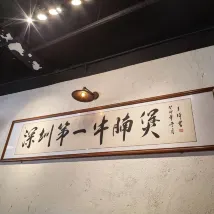 深圳第一牛腩煲